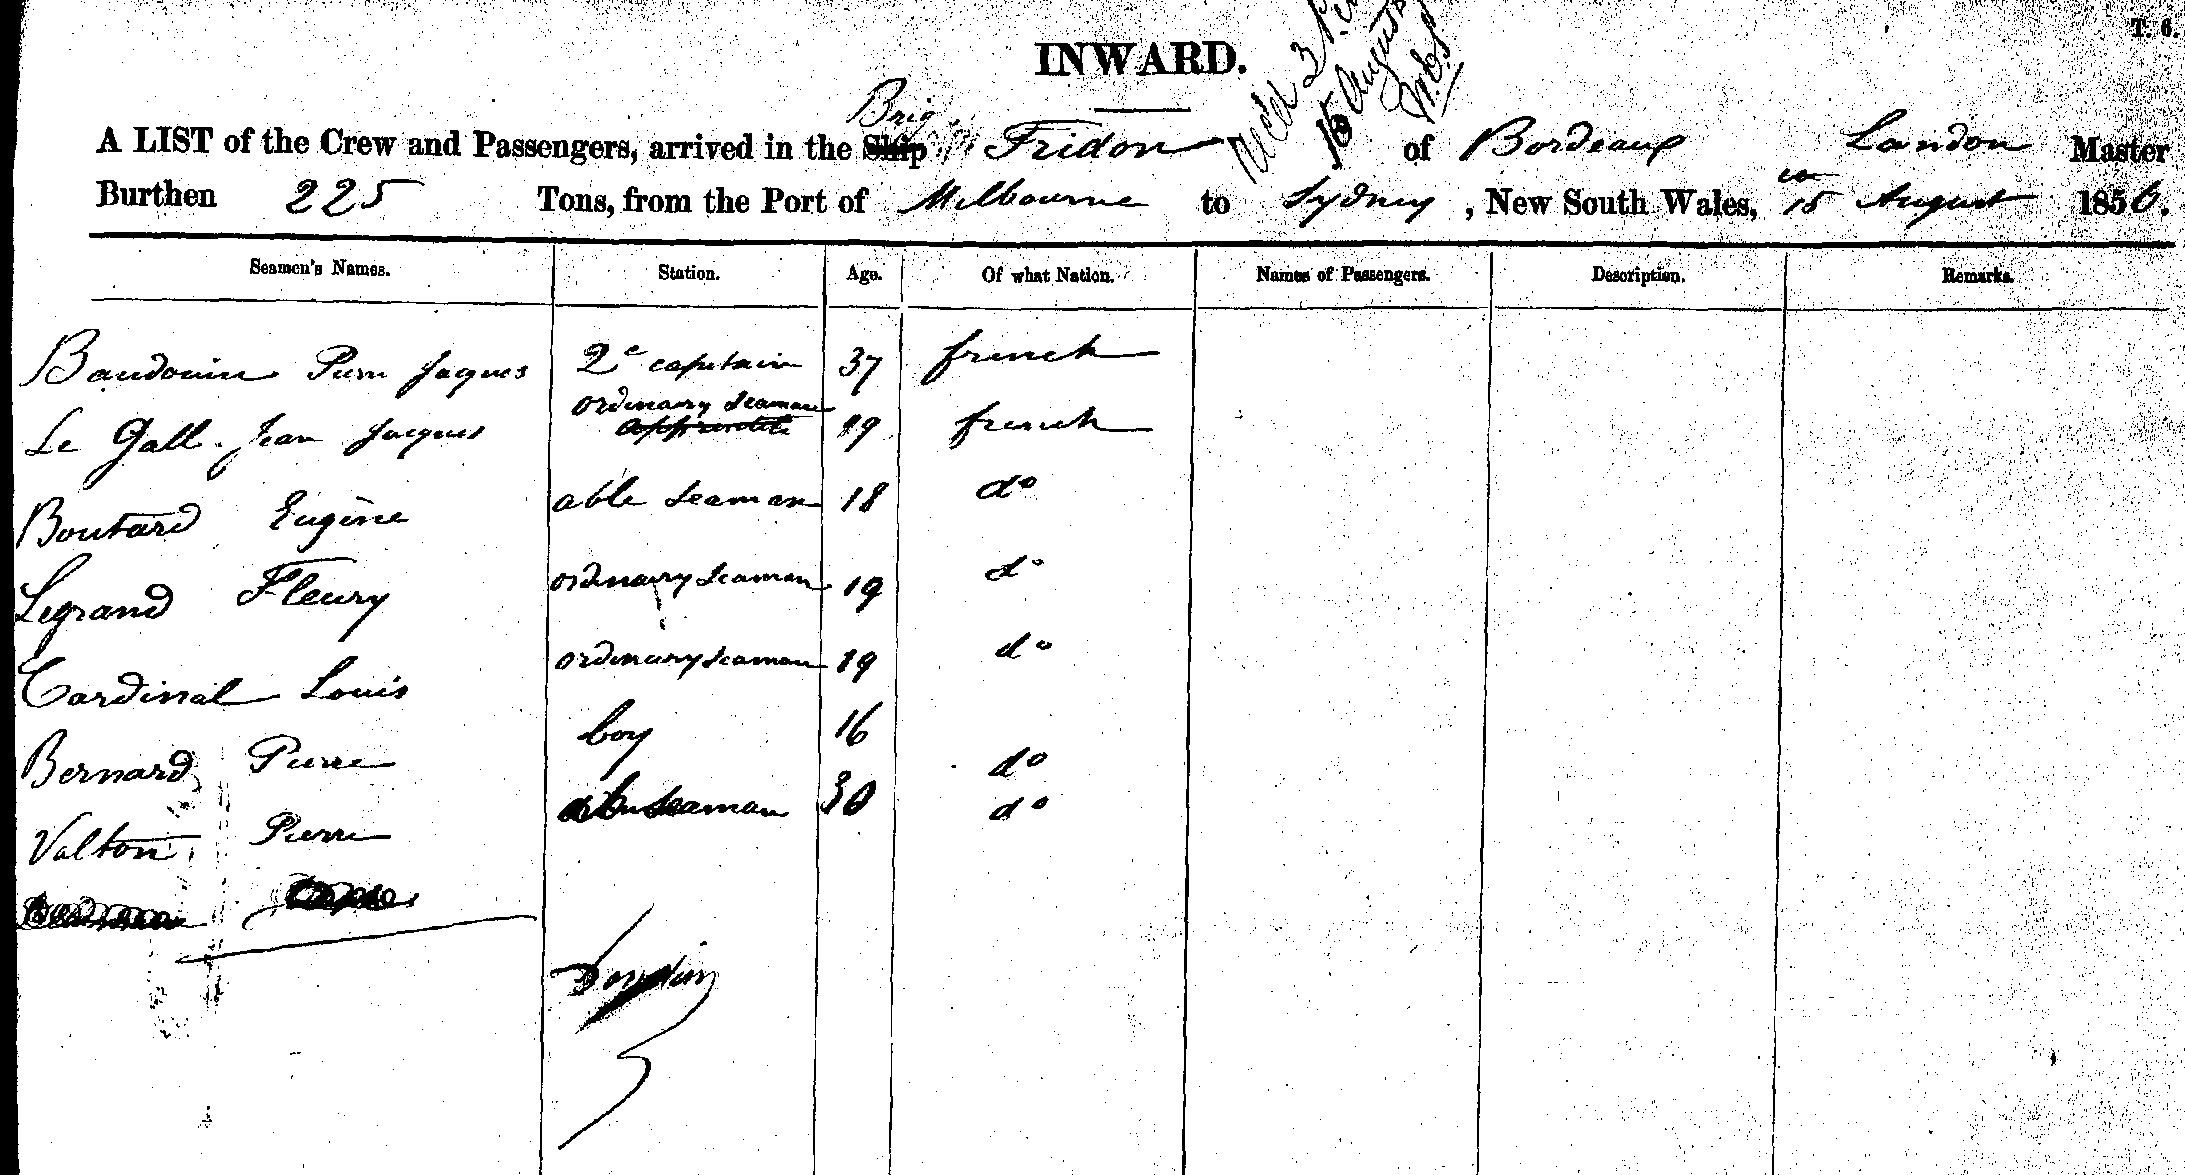 T. 6.
INWARD.
Brig
A LIST of the Crew and Passengers, arrived in the Ship Fridon of Bordeaux Landon Master
Burthen 225 Tons, from the Port of Melbourne to Sydney, New South Wales, 15 August 1856.
Seamen's Names. Station. Age. Of what Nation. Names of Passengers. Description. Remarks.
Baudouin Pierre Jacques 2e capitain 37 french
ordinairy seaman
Le Gall Jean Jacques apprentice 19 french
Boutard Eugène able seaman 18 do
Legrand Fleury ordinairy seaman 19 do
Cardinal Louis ordinary seaman 19 do
Bernard Pierre boy 16 do
Valton Pierre seaman 30 do